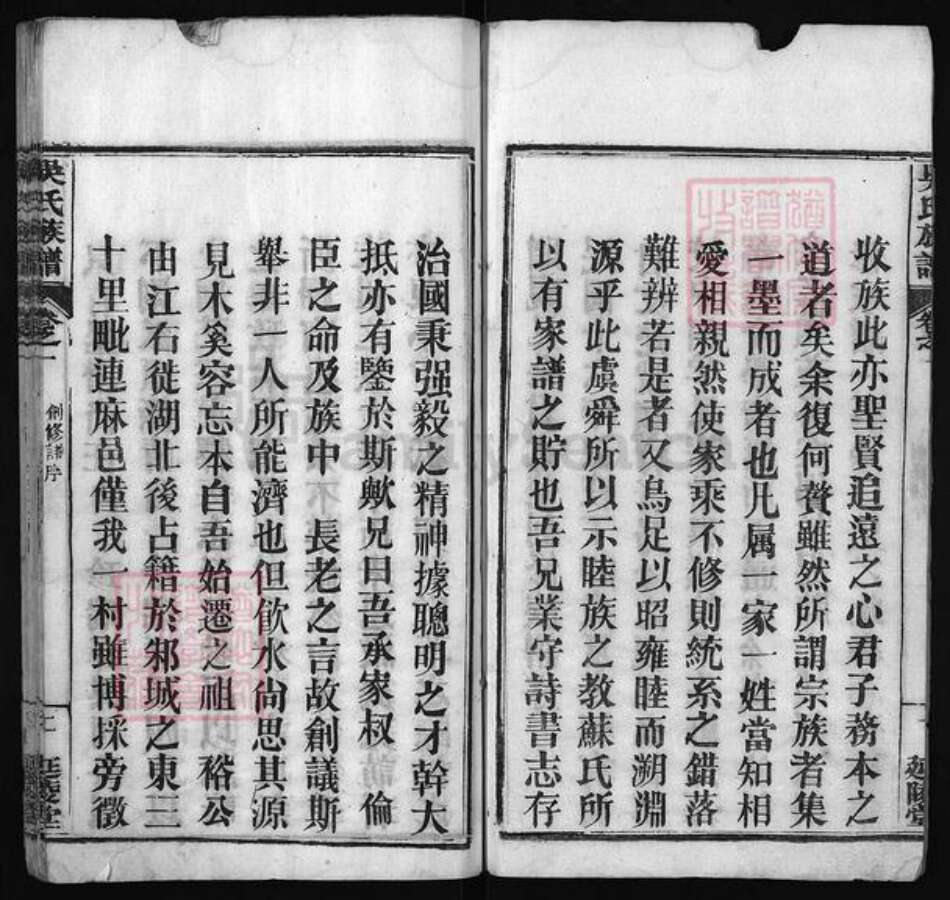 收族此亦聖賢追遠之心君子務本之
道者矣余復何贅雖然所謂宗族者集
一墨而成者也凡属一家一姓當知相
愛相親然使家乘不修則統系之錯落
難辨若是者又烏足以昭雍睦而溯淵
源乎此虞舜所以示睦族之教蘇氏所
以有家譜之貯也吾兄業守詩書志存
延陵堂
吳氏族譜
卷之一
創修譜序
延陵堂
治國秉强毅之精神據聰明之才幹大
抵亦有鑒於斯歟兄曰吾承家叔 倫
臣之命及族中 長老之言故創議斯
舉非一人所能濟也但飲水尚思其源
見木奚容忘本自吾始遷之祖 裕公
由江右徙湖北後占籍於邾城之東三
十里毗連麻邑僅我一村雖博採旁徵